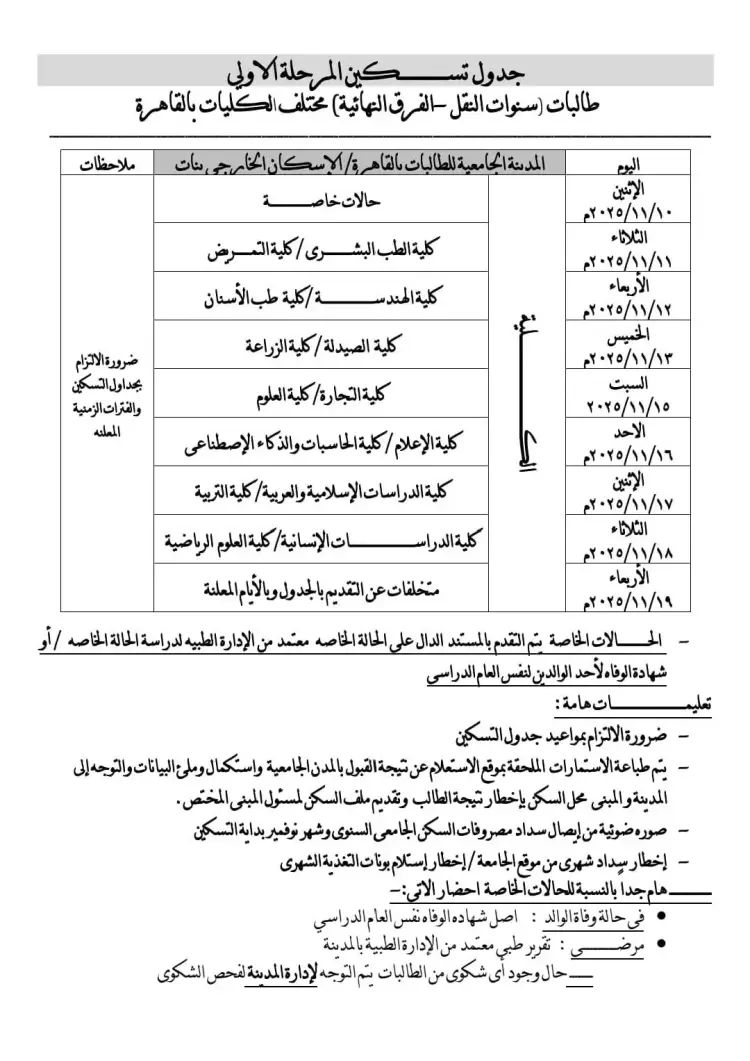 جدول تسكين المرحلة الاولي
طالبات (سنوات النقل – الفرق النهائية) مختلف الكليات بالقاهرة
اليوم المدينة الجامعية للطالبات بالقاهرة/الإسكان الخارجي بنات ملاحظات
الكلية
الإثنين
٢٠٢٥/١١/١٠م
حالات خاصة
الثلاثاء
٢٠٢٥/١١/١١م
كلية الطب البشرى/كلية التمريض
الأربعاء
٢٠٢٥/١١/١٢م
كلية الهندسة/كلية طب الأسنان
الخميس
٢٠٢٥/١١/١٣م
كلية الصيدلة/كلية الزراعة
السبت
٢٠٢٥/١١/١٥
كلية التجارة/كلية العلوم
الاحد
٢٠٢٥/١١/١٦م
كلية الإعلام/كلية الحاسبات والذكاء الإصطناعى
الإثنين
٢٠٢٥/١١/١٧م
كلية الدراسات الإسلامية والعربية/كلية التربية
الثلاثاء
٢٠٢٥/١١/١٨م
كلية الدراسات الإنسانية/كلية العلوم الرياضية
الأربعاء
٢٠٢٥/١١/١٩م
متخلفات عن التقديم بالجدول وبالأيام المعلنة
ضرورة الالتزام
بجداول التسكين
والفترات الزمنية
المعلنه
– الحالات الخاصة يتم التقدم بالمستند الدال على الحالة الخاصه معتمد من الإدارة الطبيه لدراسة الحالة الخاصه /أو
شهادة الوفاه لأحد الوالدين لنفس العام الدراسي
تعليمات هامة :
– ضرورة الالتزام بمواعيد جدول التسكين
– يتم طباعة الاستمارات الملحقة بموقع الاستعلام عن نتيجة القبول بالمدن الجامعية واستكمال وملئ البيانات والتوجه إلى
المدينة والمبنى محل السكن بإخطار نتيجة الطالب وتقديم ملف السكن لمسئول المبنى المختص.
– صوره ضوئية من إيصال سداد مصروفات السكن الجامعى السنوى وشهر نوفمبر بداية التسكين
– إخطار سداد شهرى من موقع الجامعة/إخطار إستلام بونات التغذية الشهرى
هام جداً بالنسبة للحالات الخاصة احضار الاتي:–
• في حالة وفاة الوالد : اصل شهاده الوفاه نفس العام الدراسي
• مرضى : تقرير طبي معتمد من الإدارة الطبية بالمدينة
حال وجود أى شكوى من الطالبات يتم التوجه لإدارة المدينة لفحص الشكوى